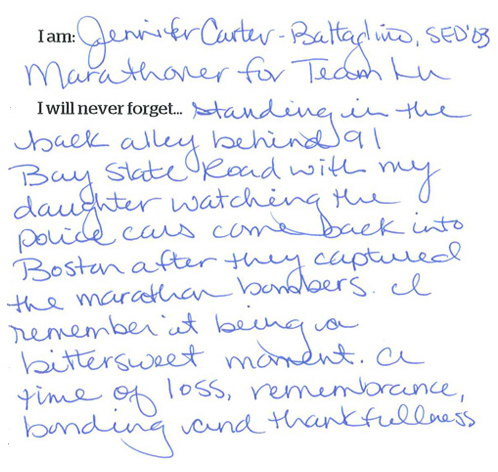 I am: Jennifer Carter-Battaglino, SED'03
Marathoner for Team Lu
I will never forget... standing in the
back alley behind 91
Bay State Road with my
daughter watching the
police cars come back into
Boston after they captured
the marathon bombers. I
remember it being a
bittersweet moment. A
time of loss, remembrance,
bonding and thankfullness